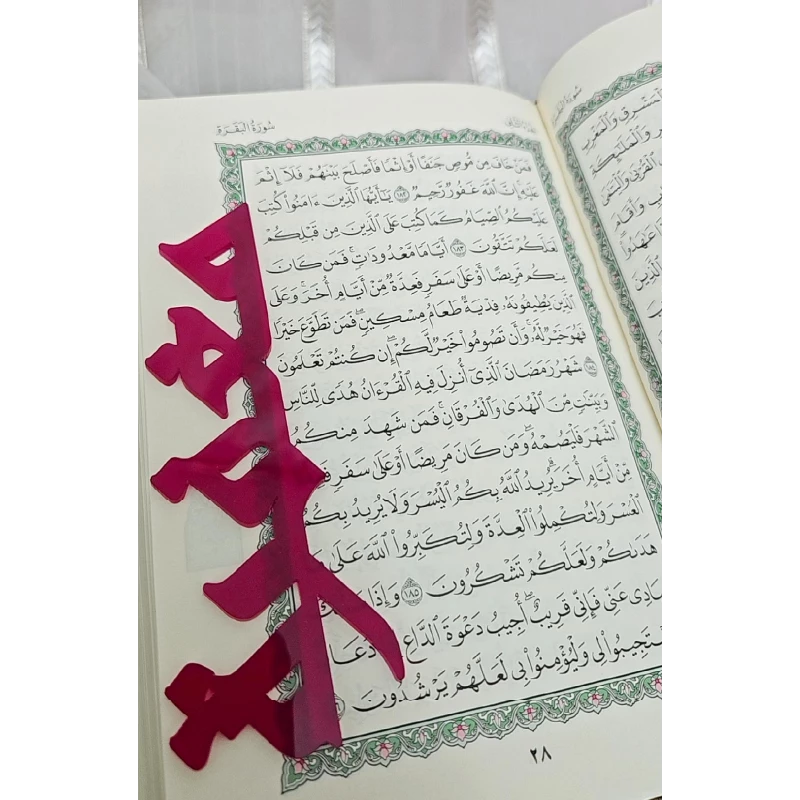 سُورَةُ البَقَرَةِ
فَمَنْ خَافَ مِن مُّوصٍ جَنَفًا أَوْ إِثْمًا فَأَصْلَحَ بَيْنَهُمْ فَلَآ إِثْمَ
عَلَيْهِ إِنَّ ٱللَّهَ غَفُورٌ رَّحِيمٌ ١٨٢ يَٰٓأَيُّهَا ٱلَّذِينَ ءَامَنُوا۟ كُتِبَ
عَلَيْكُمُ ٱلصِّيَامُ كَمَا كُتِبَ عَلَى ٱلَّذِينَ مِن قَبْلِكُمْ
لَعَلَّكُمْ تَتَّقُونَ ١٨٣ أَيَّامًا مَّعْدُودَٰتٍ ۚ فَمَن كَانَ
مِنكُم مَّرِيضًا أَوْ عَلَىٰ سَفَرٍ فَعِدَّةٌ مِّنْ أَيَّامٍ أُخَرَ ۚ وَعَلَى
ٱلَّذِينَ يُطِيقُونَهُۥ فِدْيَةٌ طَعَامُ مِسْكِينٍ ۖ فَمَن تَطَوَّعَ خَيْرًا
فَهُوَ خَيْرٌ لَّهُۥ ۚ وَأَن تَصُومُوا۟ خَيْرٌ لَّكُمْ ۖ إِن كُنتُمْ تَعْلَمُونَ
١٨٤ شَهْرُ رَمَضَانَ ٱلَّذِىٓ أُنزِلَ فِيهِ ٱلْقُرْءَانُ هُدًى لِّلنَّاسِ
وَبَيِّنَٰتٍ مِّنَ ٱلْهُدَىٰ وَٱلْفُرْقَانِ ۚ فَمَن شَهِدَ مِنكُمُ
ٱلشَّهْرَ فَلْيَصُمْهُ ۖ وَمَن كَانَ مَرِيضًا أَوْ عَلَىٰ سَفَرٍ
مِّنْ أَيَّامٍ أُخَرَ ۗ يُرِيدُ ٱللَّهُ بِكُمُ ٱلْيُسْرَ وَلَا يُرِيدُ بِكُمُ
ٱلْعُسْرَ وَلِتُكْمِلُوا۟ ٱلْعِدَّةَ وَلِتُكَبِّرُوا۟ ٱللَّهَ عَلَىٰ
هَدَىٰكُمْ وَلَعَلَّكُمْ تَشْكُرُونَ ١٨٥ وَإِذَا
عَنِّى فَإِنِّى قَرِيبٌ ۖ أُجِيبُ دَعْوَةَ ٱلدَّاعِ
وَلْيُؤْمِنُوا۟ بِى لَعَلَّهُمْ يَرْشُدُونَ
٢٨